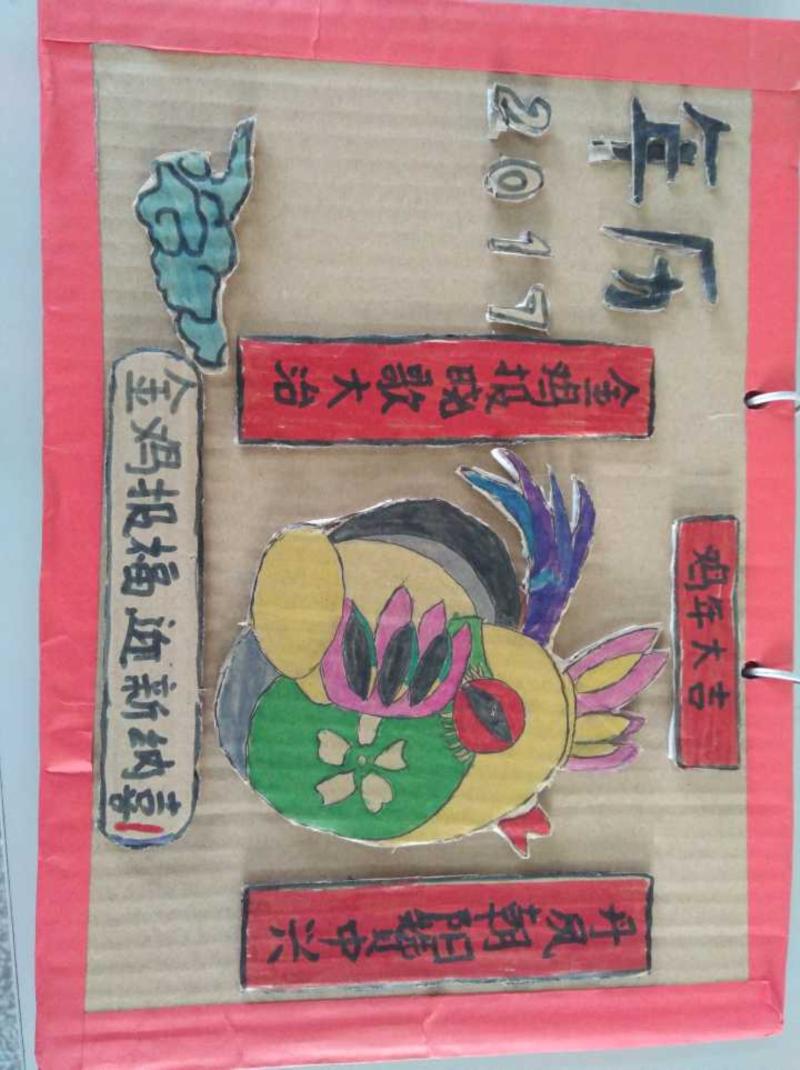 年历
2017
鸡年大吉
金鸡报晓歌大治
丹凤朝阳赞中兴
金鸡报福迎新纳喜